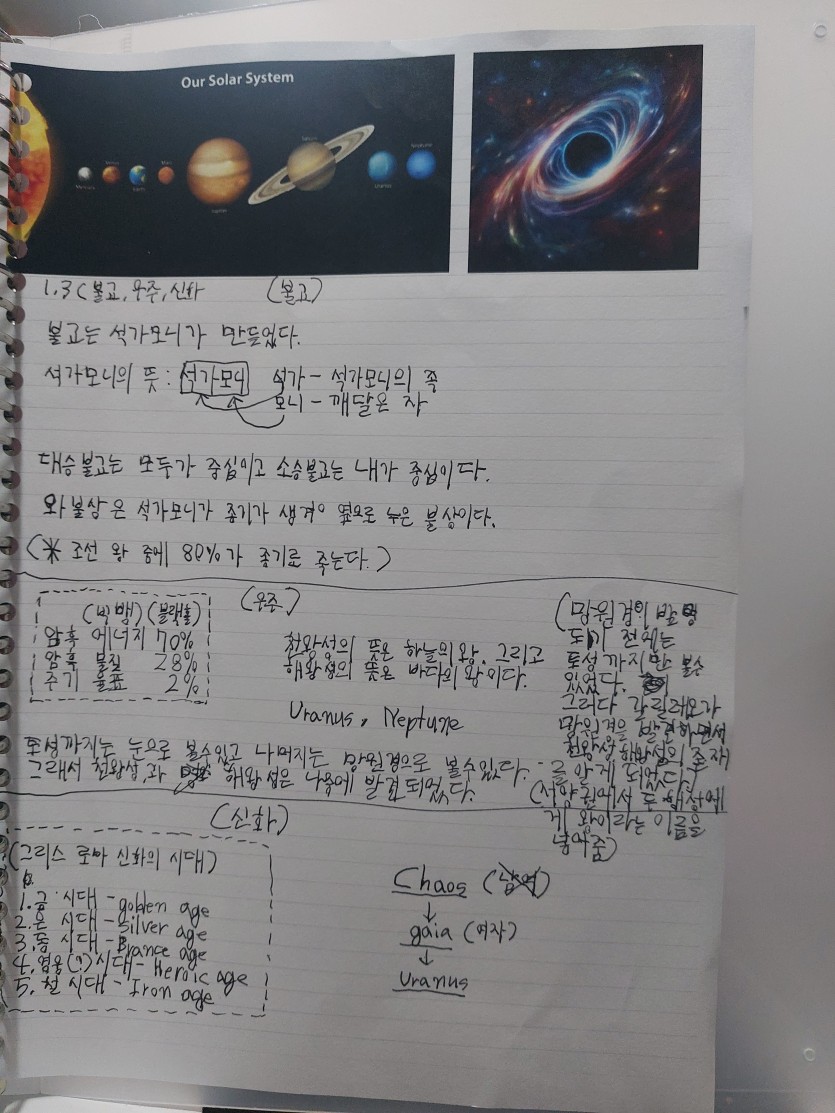 Our Solar System
Mercury
Venus
Earth
Mars
Jupiter
Saturn
Uranus
Neptune
1.3 (불교, 우주, 신화
(불교)
불교는 석가모니가 만들었다.
석가모니의 뜻: 석가모니 석가 - 석가모니의 족
모니 - 깨달은 자
대승불교는 모두가 중심이고 소승불교는 내가 중심이다.
와불상은 석가모니가 종기가 생겨 옆으로 누은 불상이다.
(* 조선 왕 중에 80%가 종기로 죽는다.)
(우주)
(빅뱅) (블랙홀)
암흑 에너지 70%
암흑 물질 28%
주기 율표 2%
천왕성의 뜻은 하늘의 왕. 그리고
해왕성의 뜻은 바다의 왕이다.
Uranus, Neptune
(망원경이 발명
되기 전에는
토성까지만 볼수
있었다.
그러다 갈릴레오가
망원경을 발견하면서
천왕성 해왕성의 존재
를 알게 되었다.)
(서양권에서 두 행성에
게 왕이라는 이름을
붙여줌)
토성까지는 눈으로 볼수있고 나머지는 망원경으로 볼수있다.
그래서 천왕성,과 해왕성은 나중에 발견되었다.
(신화)
(그리스 로마 신화의 시대)
1. 금 시대 - golden age
2. 은 시대 - silver age
3. 동 시대 - Brance age
4. 영웅(?) 시대 - Heroic age
5. 철 시대 - Iron age
Chaos
↓
gaia (여자)
↓
Uranus